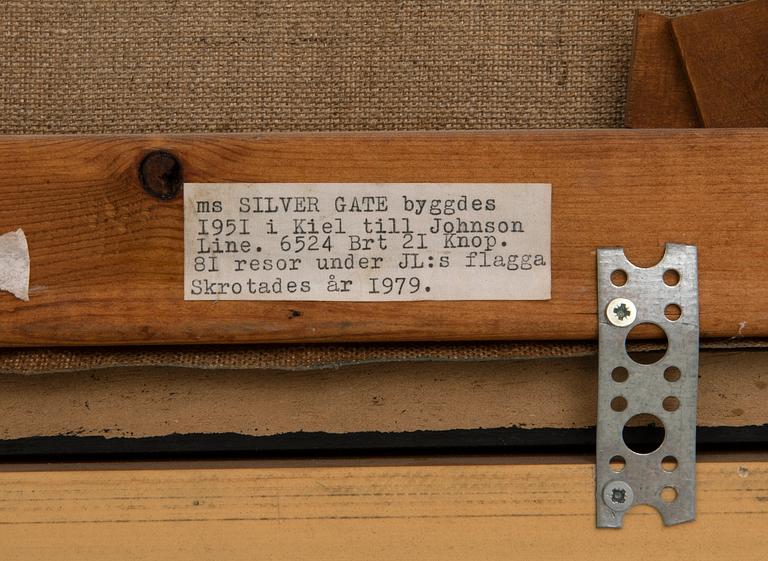 ms SILVER GATE byggdes
I95I i Kiel till Johnson
Line. 6524 Brt 2I Knop.
8I resor under JL:s flagga
Skrotades år I979.